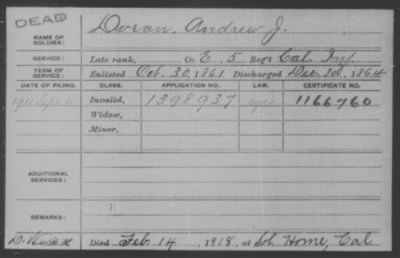 DEAD
NAME OF SOLDIER: Doran, Andrew J.
SERVICE: Late rank, Co. E, 5 Reg't Cal. Inf.
TERM OF SERVICE: Enlisted Oct. 30, 1861 Discharged Dec. 1864
DATE OF FILING. CLASS. APPLICATION NO. LAW. CERTIFICATE NO.
Invalid, 1398937 1166760
Widow,
Minor,
ADDITIONAL SERVICES:
REMARKS:
Died Feb. 14, 1918, at Sol. Home, Cal